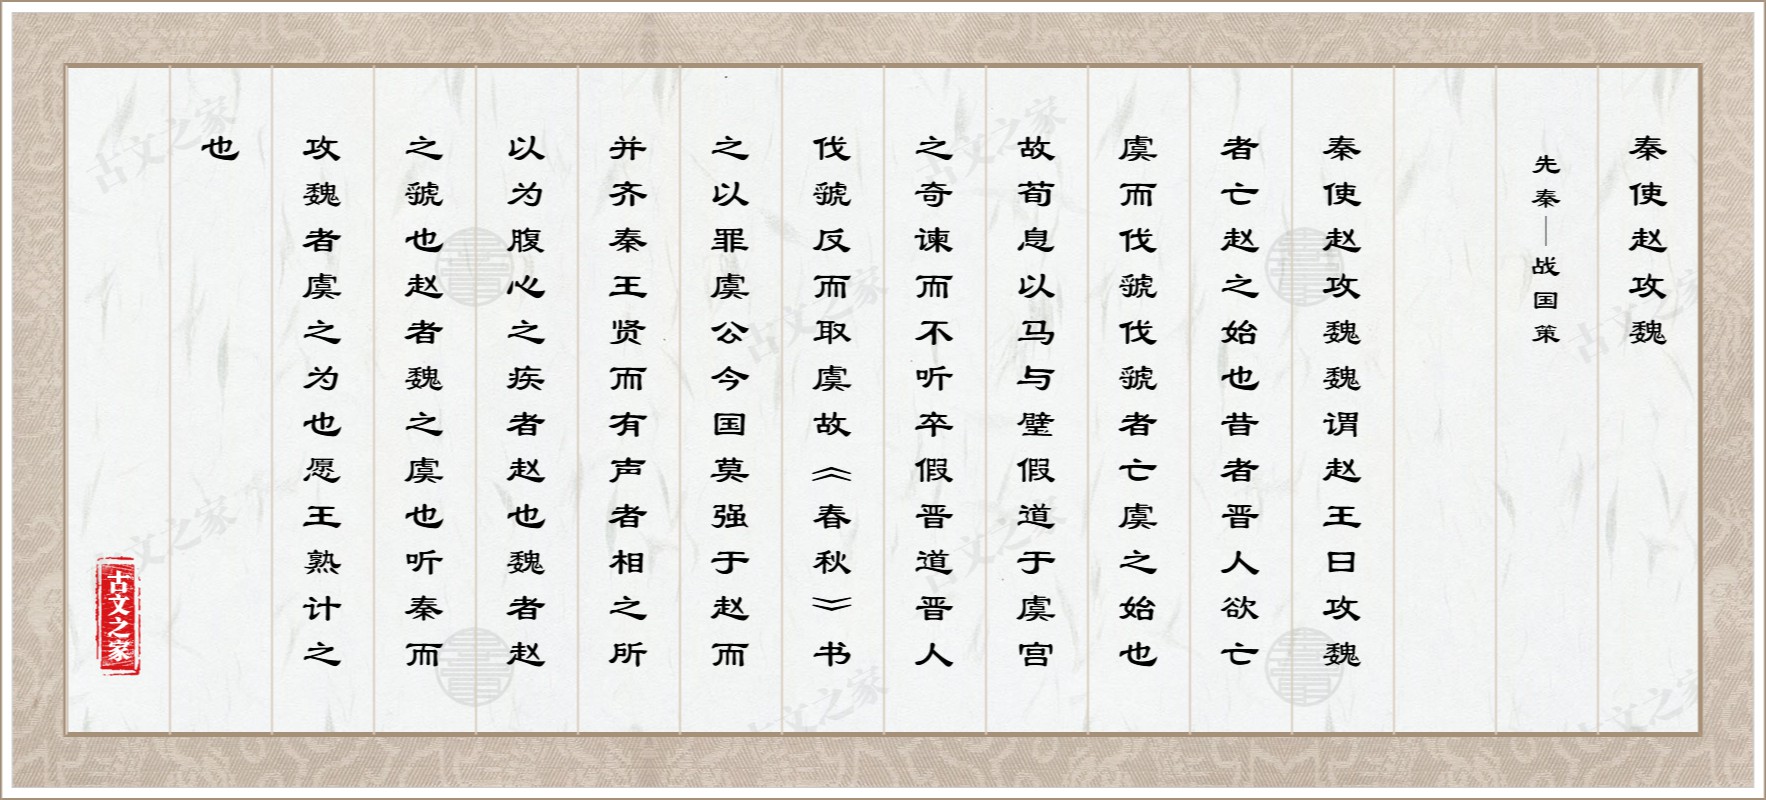 秦使赵攻魏
先秦—战国策
秦使赵攻魏魏谓赵王曰攻魏
者亡赵之始也昔者晋人欲亡
虞而伐虢伐虢者亡虞之始也
故荀息以马与璧假道于虞宫
之奇谏而不听卒假晋道晋人
伐虢反而取虞故《春秋》书
之以罪虞公今国莫强于赵而
并齐秦王贤而有声者相之所
以为腹心之疾者赵也魏者赵
之虢也赵者魏之虞也听秦而
攻魏者虞之为也愿王熟计之
也
古文之家